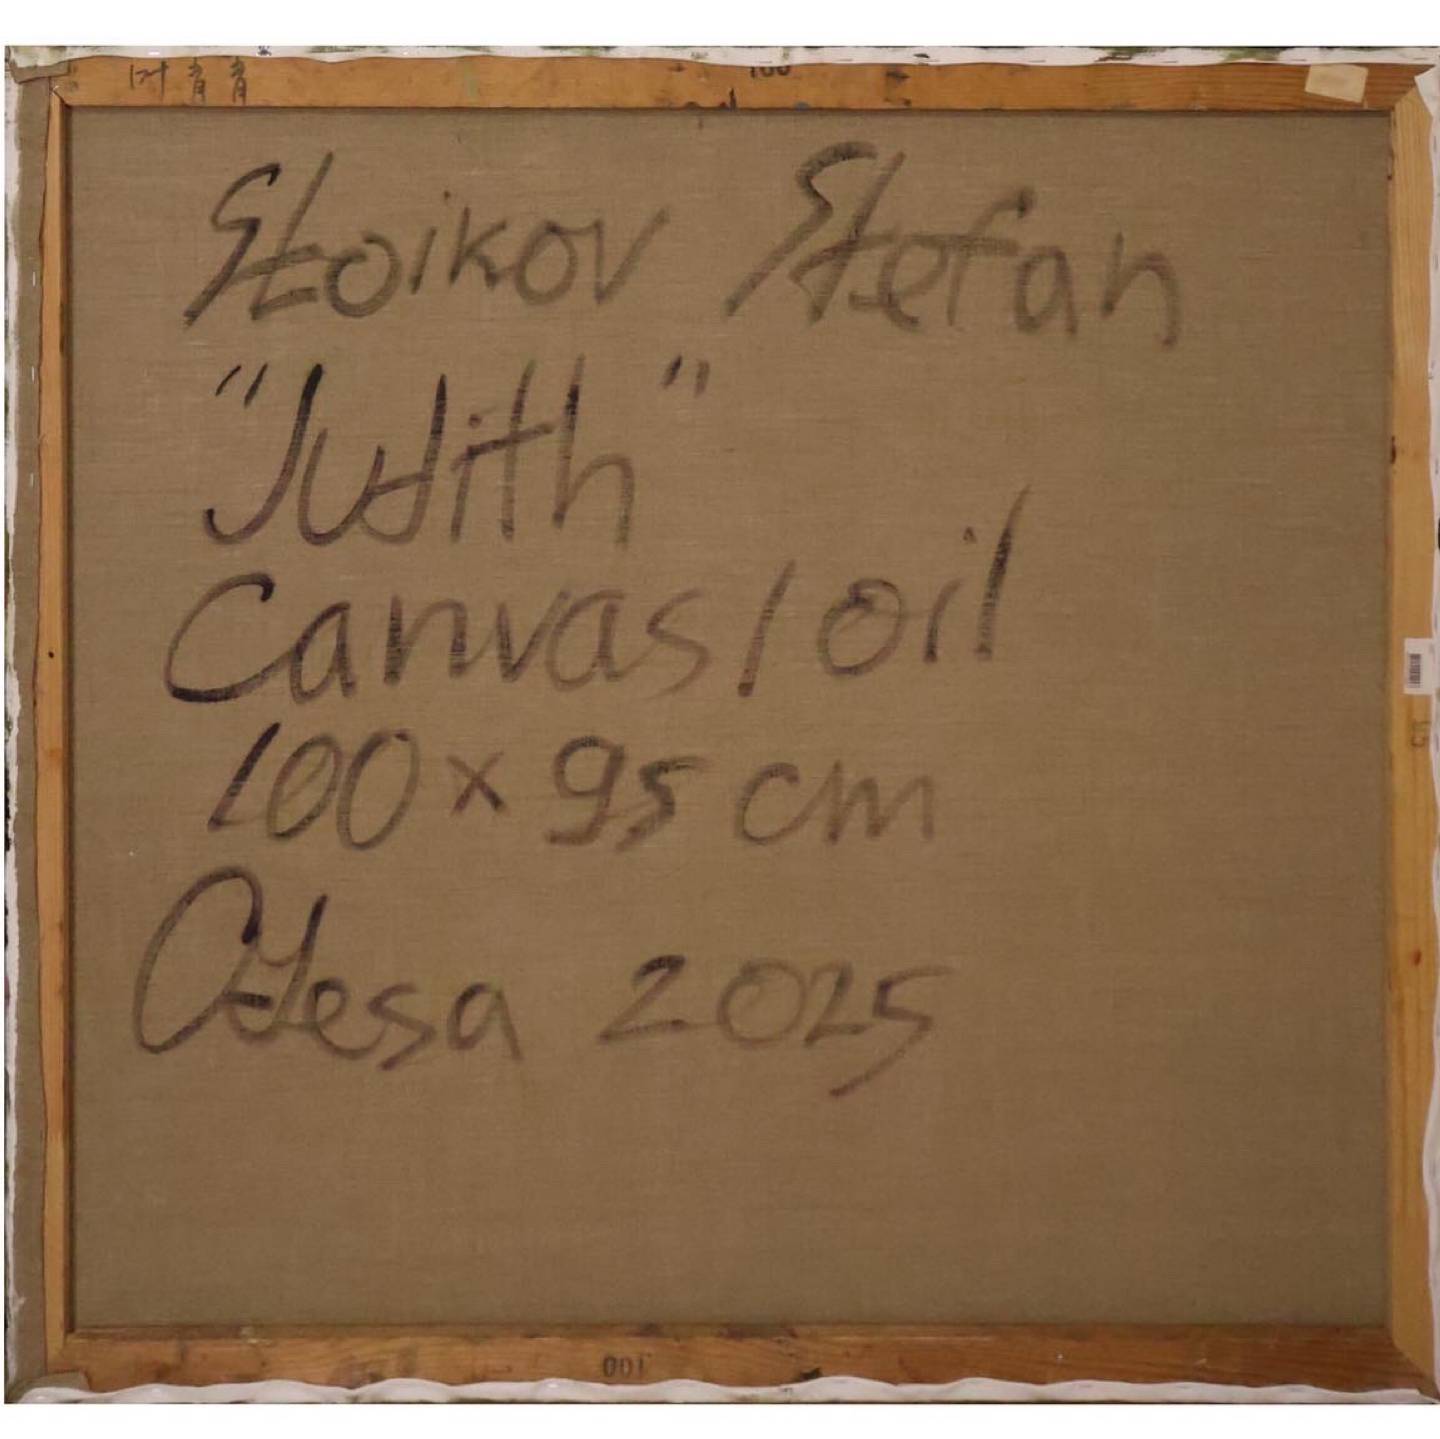 叶肖肖
100
Stoikov Stefan
"Judith"
Canvas/oil
100 x 95 cm
Odesa 2025
100